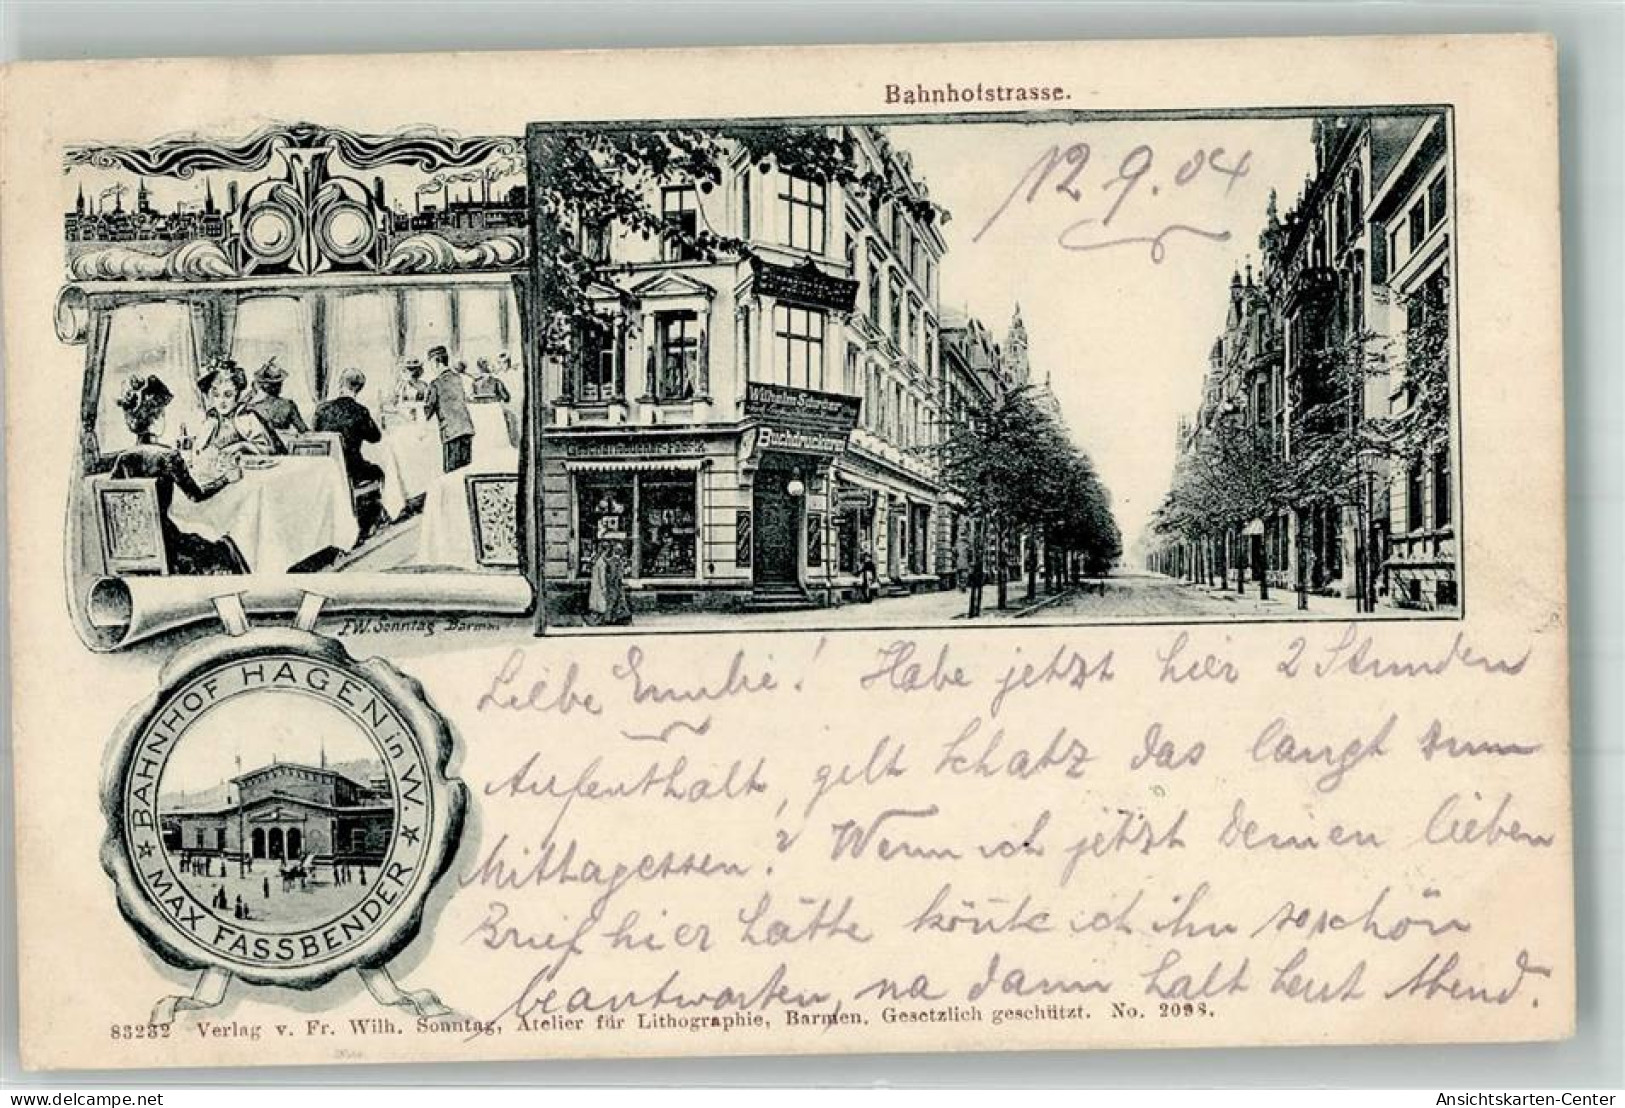 Bahnhofstrasse.
12 9. 04
Buchdruckerei
F.W. Sonntag Barmen
BAHNHOF HAGEN in W.
MAX FASSBENDER
Liebe Emilie! Habe jetzt hier 2 Stunden
Aufenthalt, gelt Schatz das langt zum
Mittagessen? Wenn ich jetzt Deinen lieben
Brief hier hätte könnte ich ihn so schön
beantworten, na dann halt heut Abend.
83232 Verlag v. Fr. Wilh. Sonntag, Atelier für Lithographie, Barmen. Gesetzlich geschützt. No. 2098.
Ansichtskarten-Center
delcampe.net